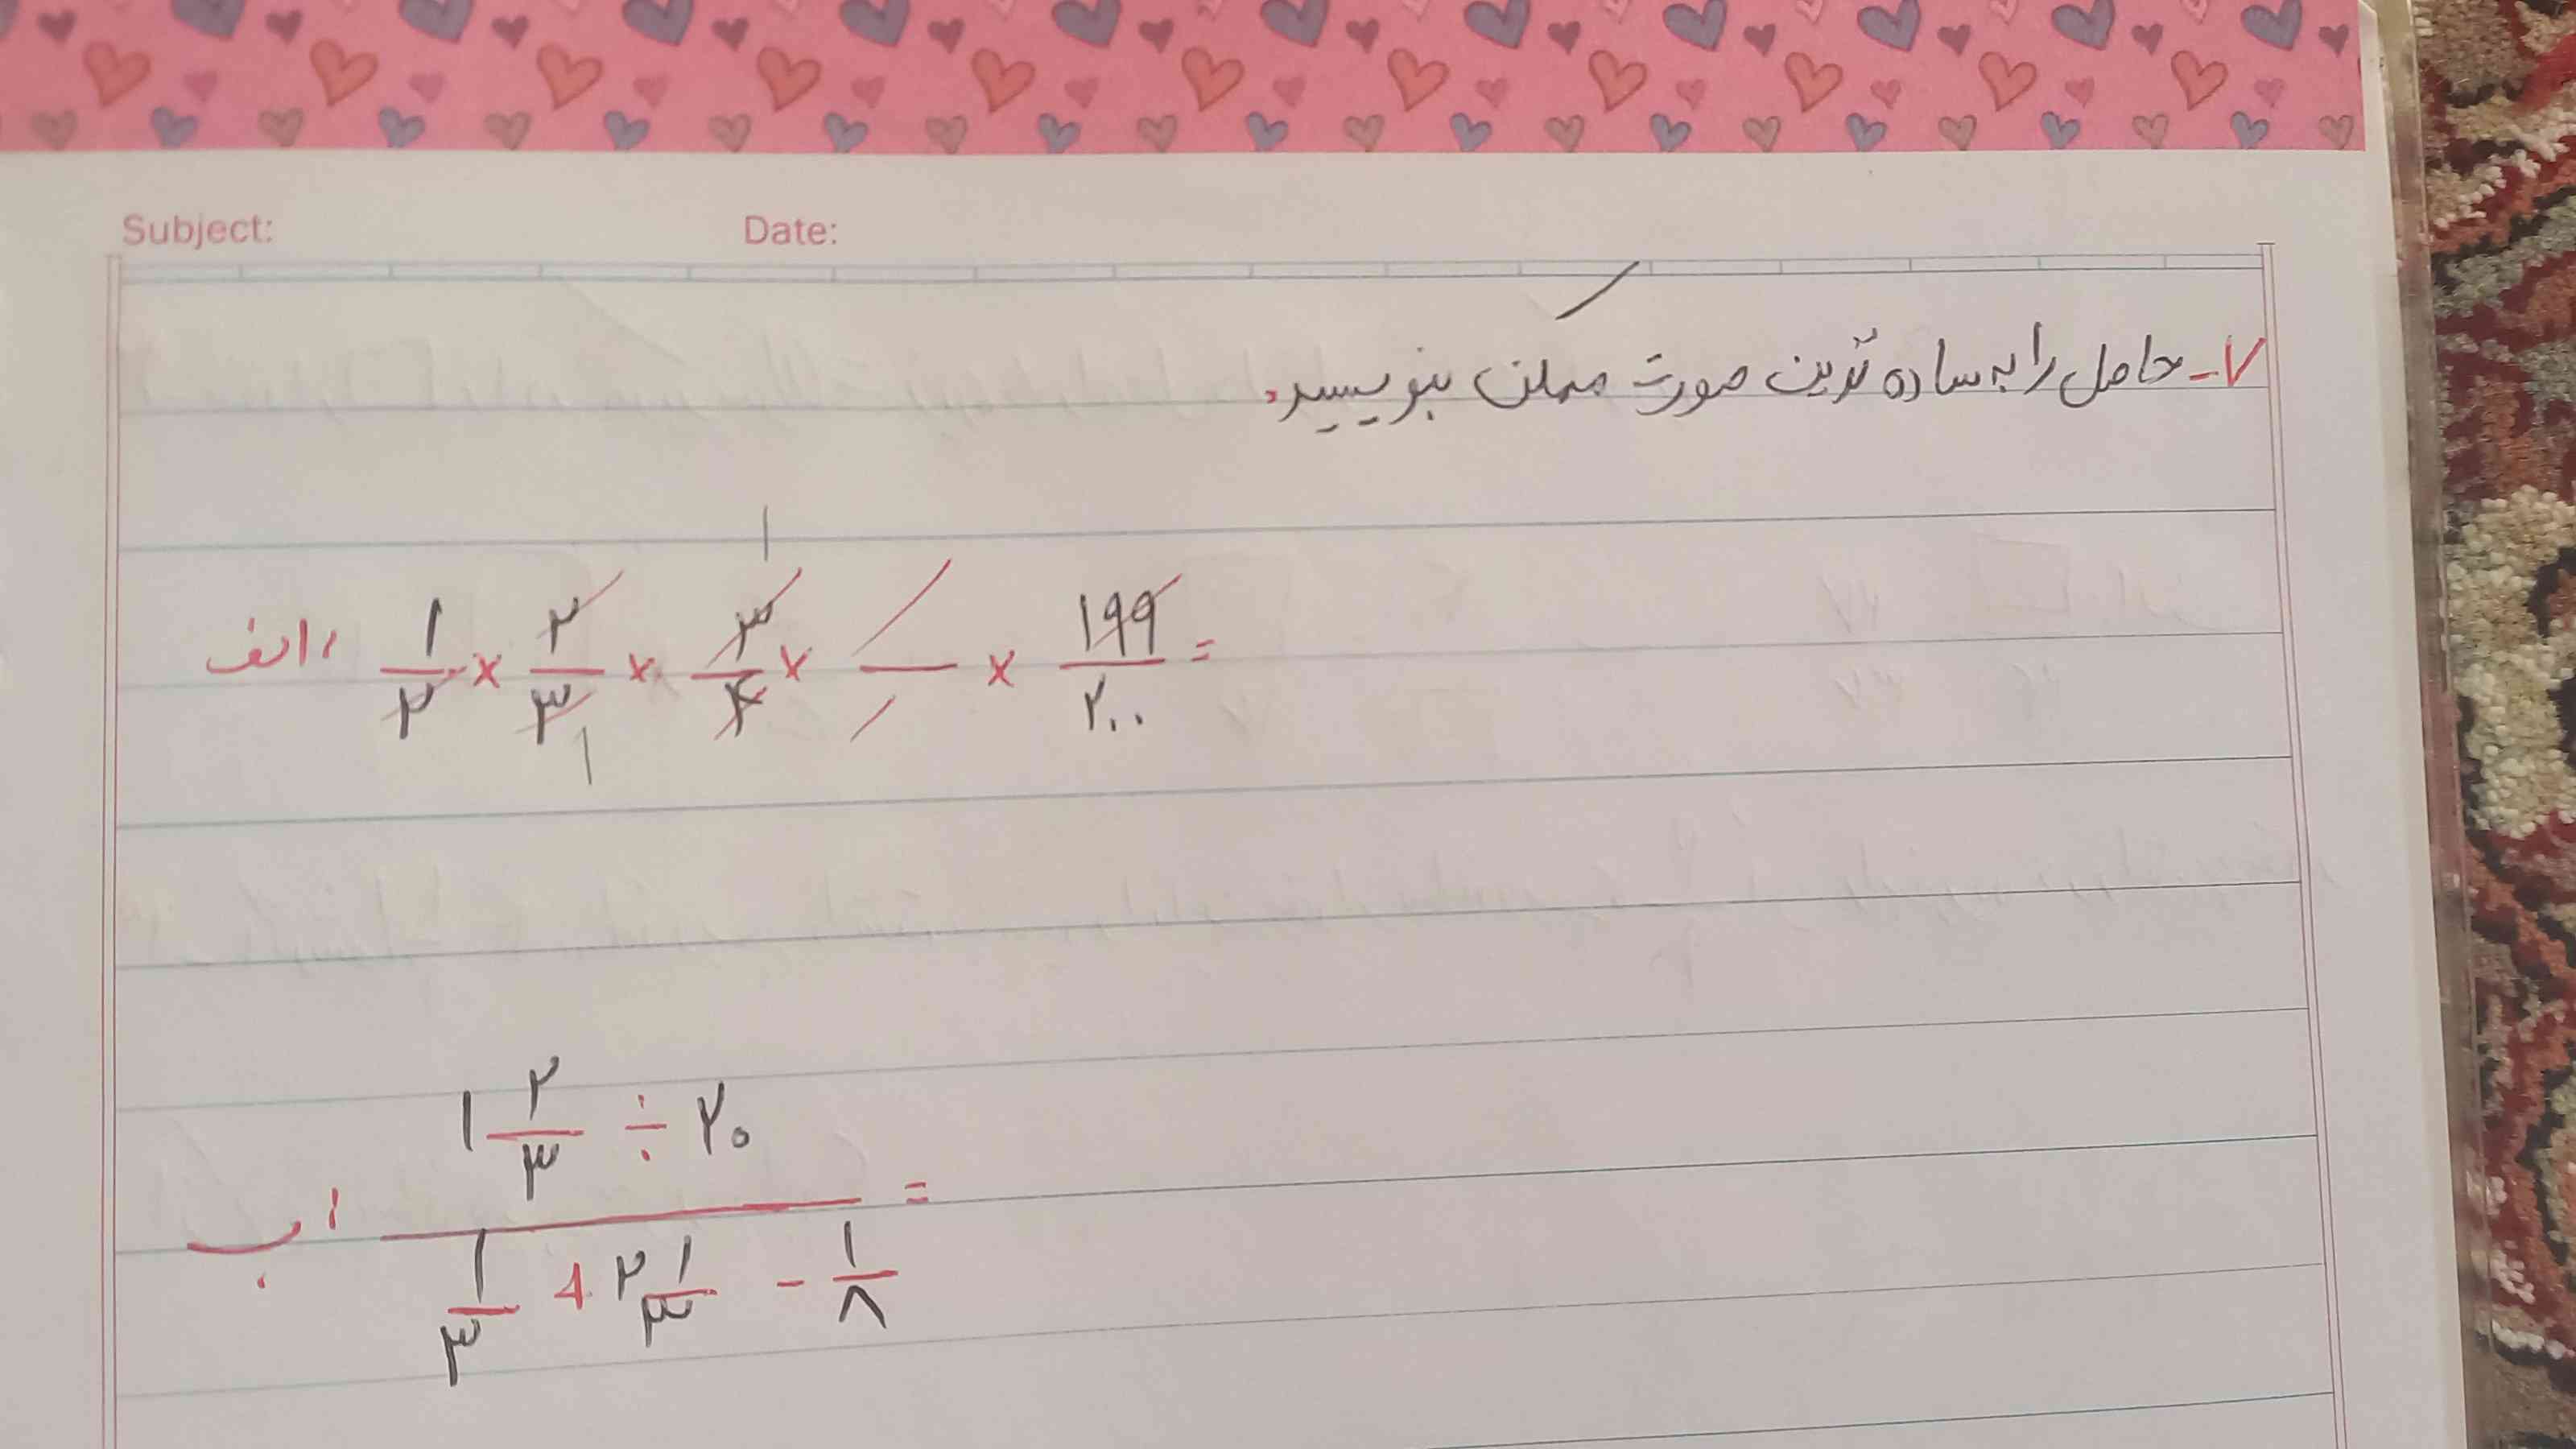 Subject: Date:
۷- حاصل را به ساده ترین صورت ممکن بنویسید.
الف) ۱/۲ × ۲/۳ × ۳/۴ × — × ۱۹۹/۲۰۰ =
۱
۱
ب) ۱ ۲/۳ ÷ ۲۰
=
۱/۳ + ۲ ۱/۳ - ۱/۸